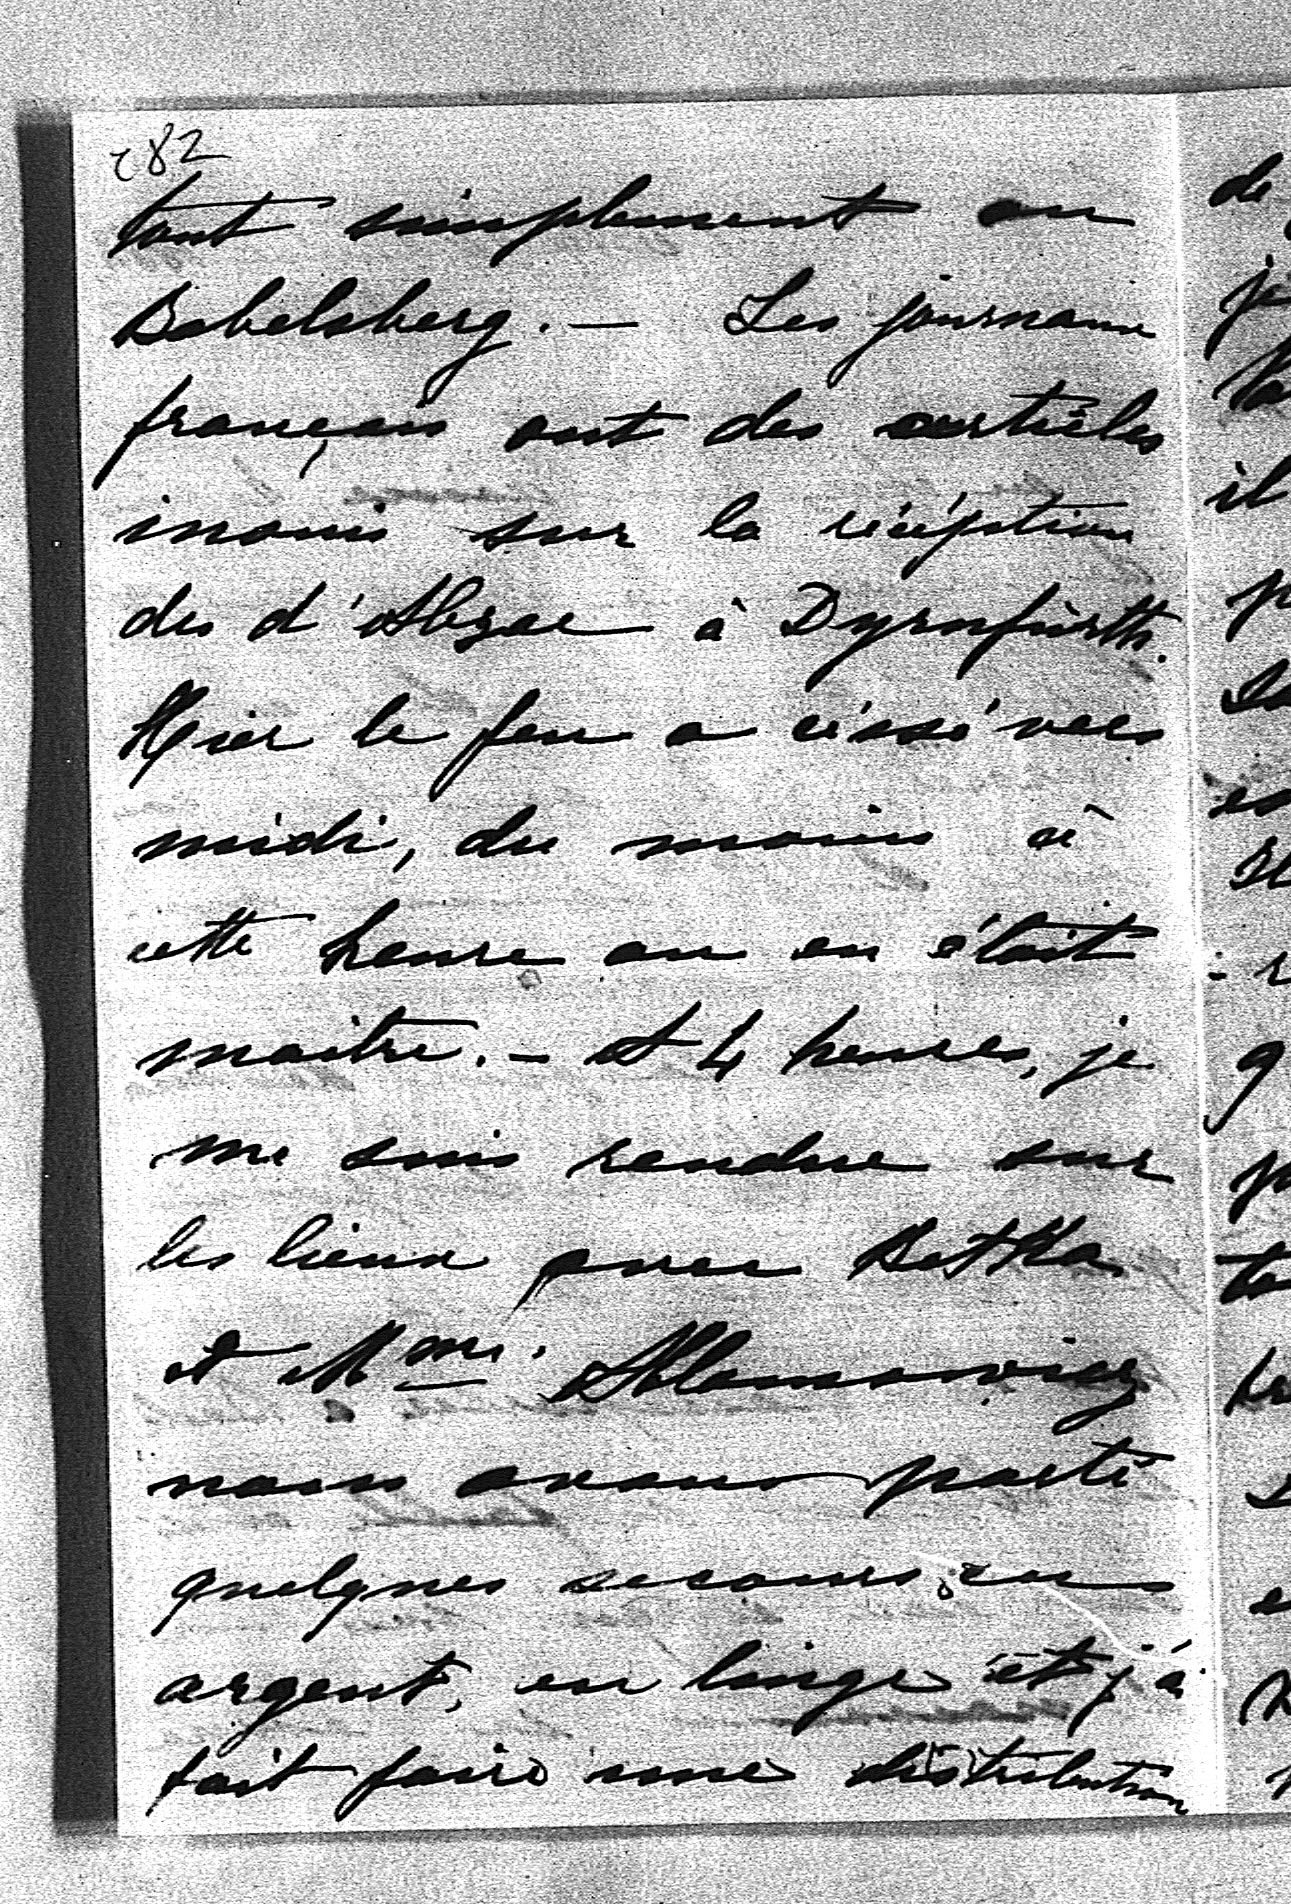 282
tout simplement au
Babelsberg. — Les journaux
français ont des articles
inouis sur la réception
des d'Abzac à Dyrnfürth.
Hier le feu a céssé vers
midi, du moins à
cette heure on en était
maitre. — A 4 heures, je
me suis rendue sur
les lieux avec Betka
et Mme. Adamowicz
nous avons porté
quelques secours en
argent, en linge et j'ai
fait faire une distribution